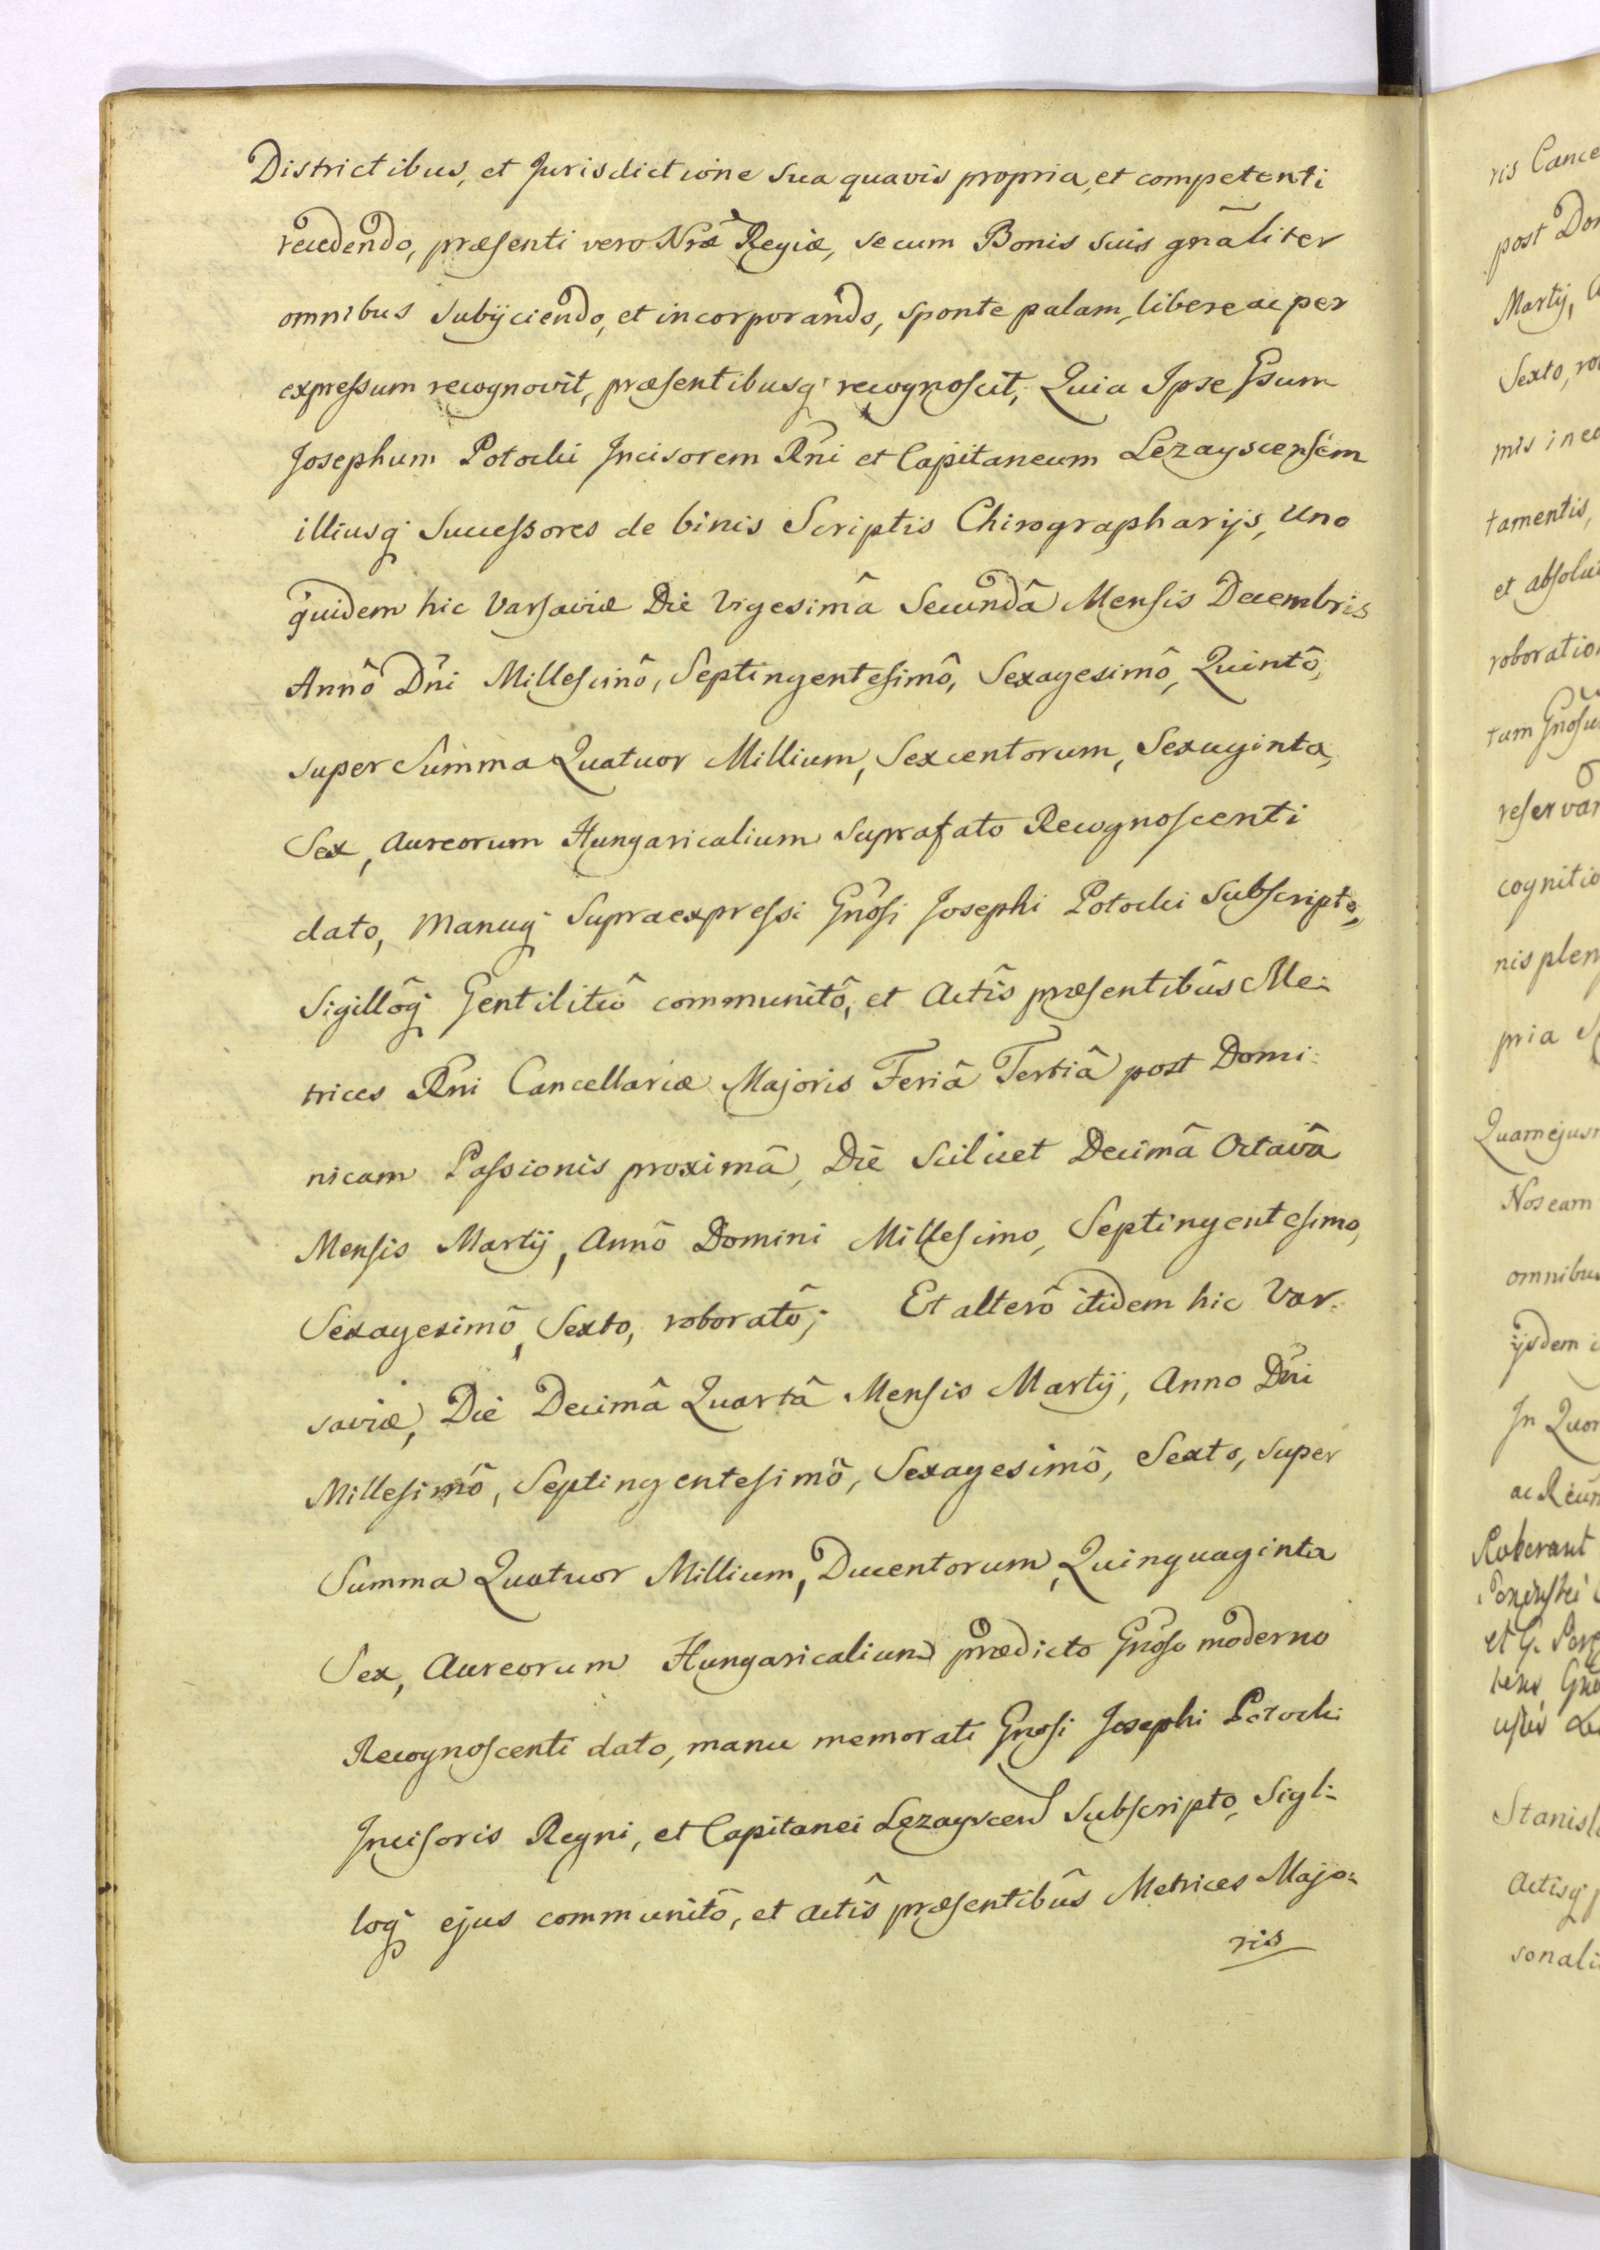 Districtibus, et Jurisdictione sua quavis propria, et competenti
recedendo, præsenti vero Nræ̃ Regiæ, se cum Bonis suis gnãliter
omnibus subijciendo, et incorporando, sponte palam, libere ac per
expressum recognovit, præsentibusq́ recognoscit, Quia Ipse Gsum
Josephum Potocki Incisorem Rñi et Capitaneum Lezayscensem
illiusq́ Successores de binis Scriptis Chirographarijs, Uno
quidem hic Varsaviæ Die Vigesimâ Secundâ Mensis Decembris
Annô Dñi Millesimô, Septingentesimô, Sexagesimô, Quintô,
super Summa Quatuor Millium, Sexcentorum, Sexaginta,
Sex, Aureorum Hungaricalium suprafato Recognoscenti
dato, Manuq́ Supraexpressi Gñosi Josephi Potocki Subscripto,
Sigillôq́ Gentilitiô communitô, et Actîs præsentibûs Me=
trices Rñi Cancellariæ Majoris Feriâ Tertiâ post Domi=
nicam Passionis proximâ, Die Scilicet Decimâ Octavâ
Mensis Martij, Annô Domini Millesimo, Septingentesimo,
Sexagesimô, Sexto, roboratô; Et alterô itidem hic Var=
saviæ, Die Decimâ Quartâ Mensis Martij, Anno Dñi
Millesimô, Septingentesimô, Sexagesimô, Sexto, super
Summa Quatuor Millium, Ducentorum, Quinquaginta
Sex, Aureorum Hungaricalium prædicto Gñoso moderno
Recognoscenti dato, manu memorati Gnosi Josephi Potocki
Incisoris Regni, et Capitanei Lezayscen Subscripto, Sigil=
loq́ ejus communitô, et Actîs præsentibûs Metrices Majo=
ris
ris Cance
post Do
Martij,
Sexto, ro
mis ine
tamentis,
et absolu
roboratio
tum Gnosu
reserva
cognitio
nis plen
pria
Quam ejus
Nos eam
omnibus
ijsdem
In Quor
ac
Roberant
et G.
Stanisl
Actisq́
sonali